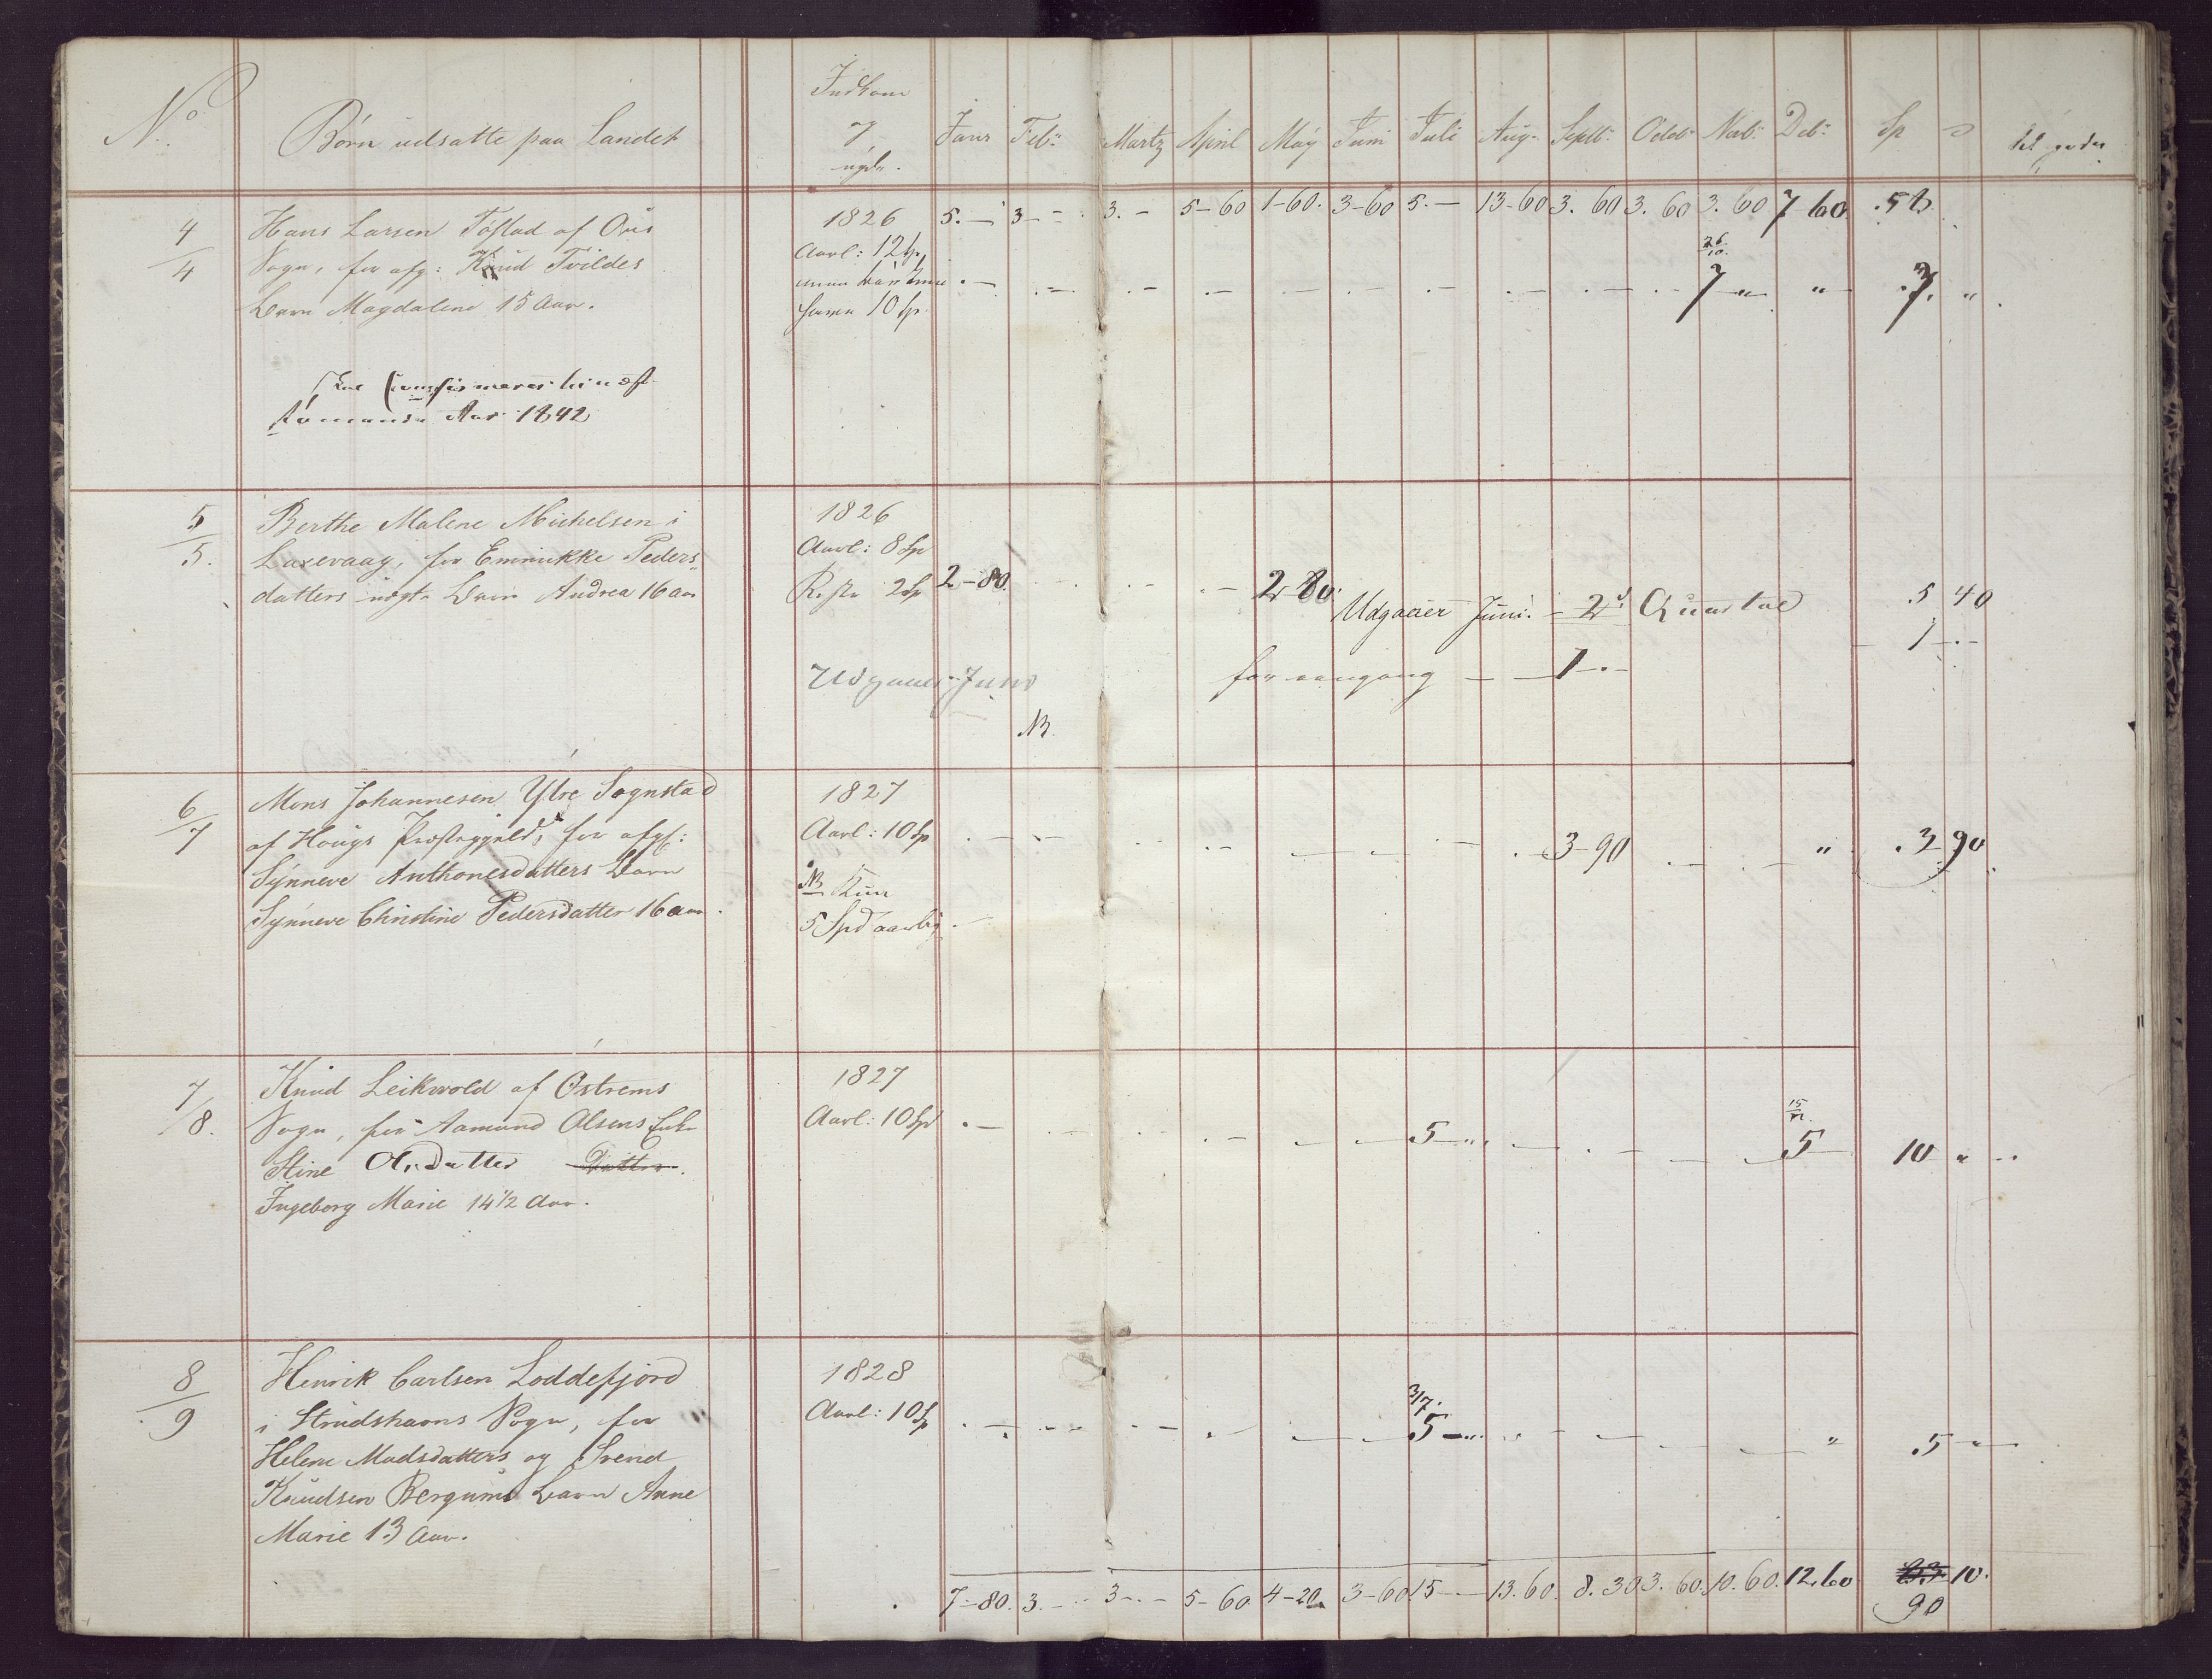 No. Børn udsatte paa Landet Indkom og udg. Janr Feb: Martz April May Juni Juli Aug: Septb: Octob: Novb: Decb: Sp til gode
5.— 3— 3.— 5-60 1-60. 3-60 5.— 13-60 3. 60 3. 60 3. 60 7 60
4/4 Hans Larsen Tøstad af Ous 1826
Sogn, for afg: Knud Tvildes Aarl: 12 Sp
Barn Magdalene 15 Aar. 10 Sp 26/10. 7 " " 7. "
Skal Confirmeres
kommende Aar 1842
5/5. Berthe Malene Michelsen i 1826
Laxevaag, for Emrikke Peders Aarl: 8 Sp
datters uægte Barn Andrea 16 aar Reste 2 Sp 2-80. 2 80. Udgaaer Juni. 2d Quartal 5 40
Udgaaer Juni for eengang — 1.- 1.-
NB.
6/7 Mons Johannesen Ytre Sognstad 1827
af Hougs Præstegjeld, for afg: Aarl: 10 Sp 3-90 " 3 90
Synneve Anthonesdatters Barn NB Kun
Synneve Christine Pedersdatter 16 aar. 5 Spd aarlig.
7/8. Knud Leikvold af Ostrems 1827
Sogn, for Aamund Olsens Enke Aarl: 10 Sp 5 15/12. 5 10 "
Stine Olsdatter Datter.
Ingeborg Marie 14 1/2 Aar.
8/9 Henrik Carlsen Loddefjord 1828
i Strudshavns Sogn, for Aarl: 10 Sp 3/7. 5 " 5 "
Helene Madsdatters og Svend
Knudsen Bergums Barn Anne
Marie 13 Aar.
7-80. 3.- 3-.- 5-60 4-20. 3-60. 15— 13.60. 8.30 3.60. 10.60. 12.60. 10.
90